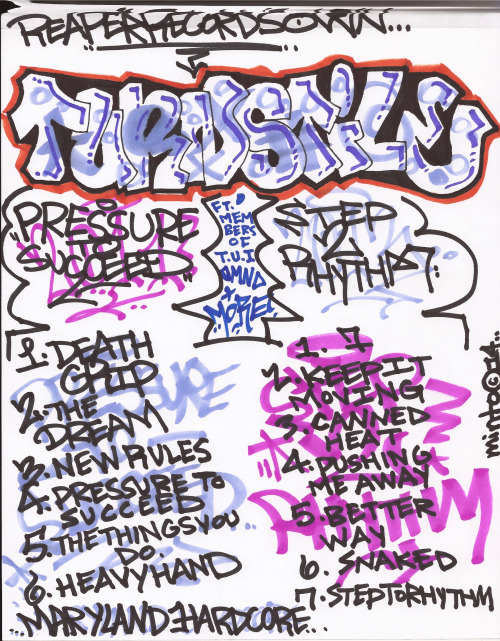 REAPER RECORDS
TURNSTILE
PRESSURE
TO
SUCCEED
FT.
MEM
BERS
OF
T.U.I
&MND
+
MORE!
STEP
2
RHYTHM
1. DEATH
GRIP
2. THE
DREAM
3. NEW RULES
4. PRESSURE TO
SUCCEED
5. THE THINGS YOU
DO.
6. HEAVY HAND
1. 7
2. KEEP IT
MOVING
3. CANNED
HEAT
4. PUSHING
ME AWAY
5. BETTER
WAY
6. SNAKED
7. STEP TO RHYTHM
...MARYLAND HARDCORE...